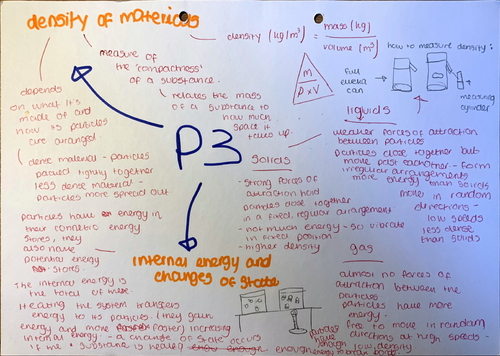 density of materials
measure of
the "compactness"
of a substance.
relates the mass
of a substance to
how much
space it
takes up.
depends
on what it's
made of and
how its particles
are arranged.
dense material - particles
packed tightly together
less dense material -
particles more spread out
density (kg/m³) = mass (kg)
volume (m³)
m
ρ x V
how to measure density:
full
eureka
can
measuring
cylinder
P3
Solids
- strong forces of
attraction hold
particles close together
in a fixed, regular arrangement
- not much energy - so vibrate
in fixed position
- higher density
liquids
weaker forces of attraction
between particles
particles close together but
move past eachother - form
irregular arrangements
more energy than solids
move in random
directions -
low speeds
less dense
than solids
gas
almost no forces of
attraction between the
particles
particles have more
energy -
free to move in random
directions at high speeds -
low density
internal energy and
changes of state
particles have energy in
their kinetic energy
stores, they
also have
potential energy
stores
The internal energy is
the total of these.
Heating the system transfers
energy to its particles (they gain
energy and move faster) increasing
internal energy - a change of state occurs
if the substance is heated enough
particles
have
enough
energy to break bonds